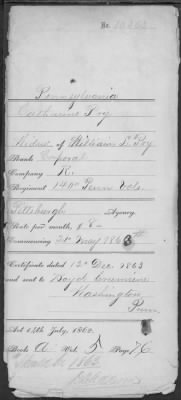 No.
Pennsylvania
Catharine Ivy
Widow of William L. Ivy
Rank Corporal
Company K.
Regiment 140" Penn Vols.
Pittsburgh Agency
Rate per month, $ 8
Commencing 2d May 1863
Certificate dated 12" Dec. 1863
and sent to Boyd Crumrine
Washington
Penn.
Act 14th July, 1862.
Book A Vol. 5 Page 76
1863